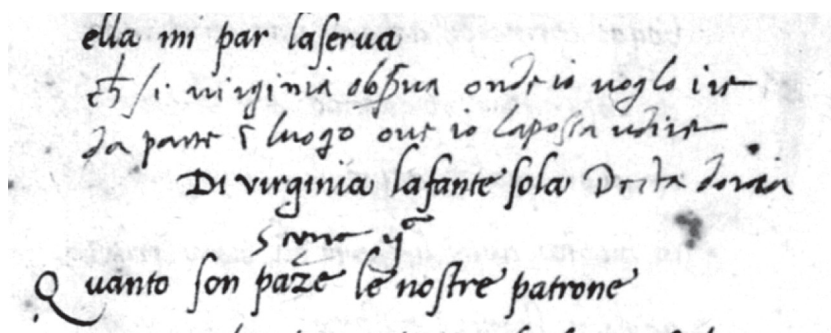 ella mi par laserua
ch̄ si uirginia obs̄ua onde io uoglo ire
da parte ī luogo oue io lapossa udire
Di virginia lafante sola Decta doria
Scena
Quanto son pazze le nostre patrone